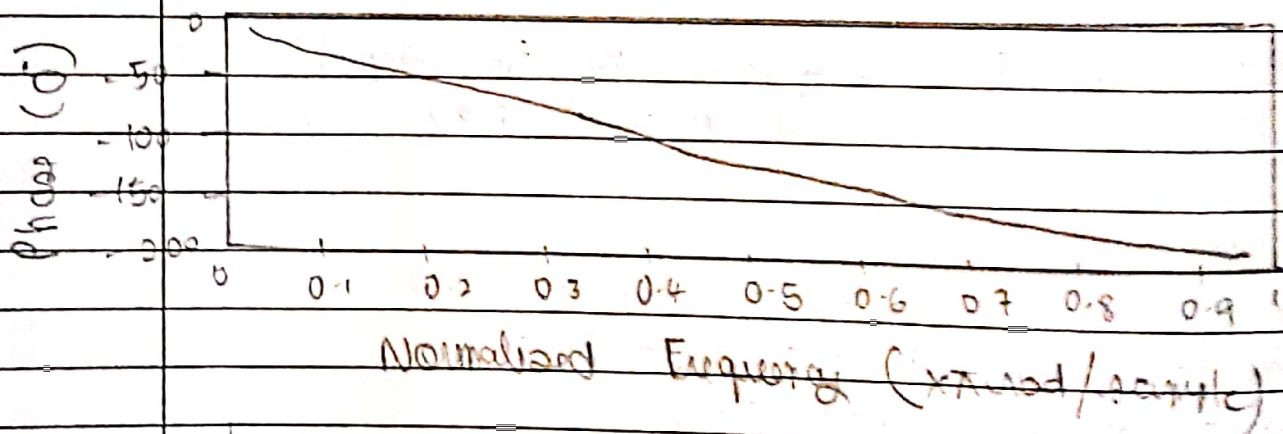 0
-50
-100
-150
-200
Phase (°)
0 0.1 0.2 0.3 0.4 0.5 0.6 0.7 0.8 0.9 1
Normalized Frequency (×π rad/sample)